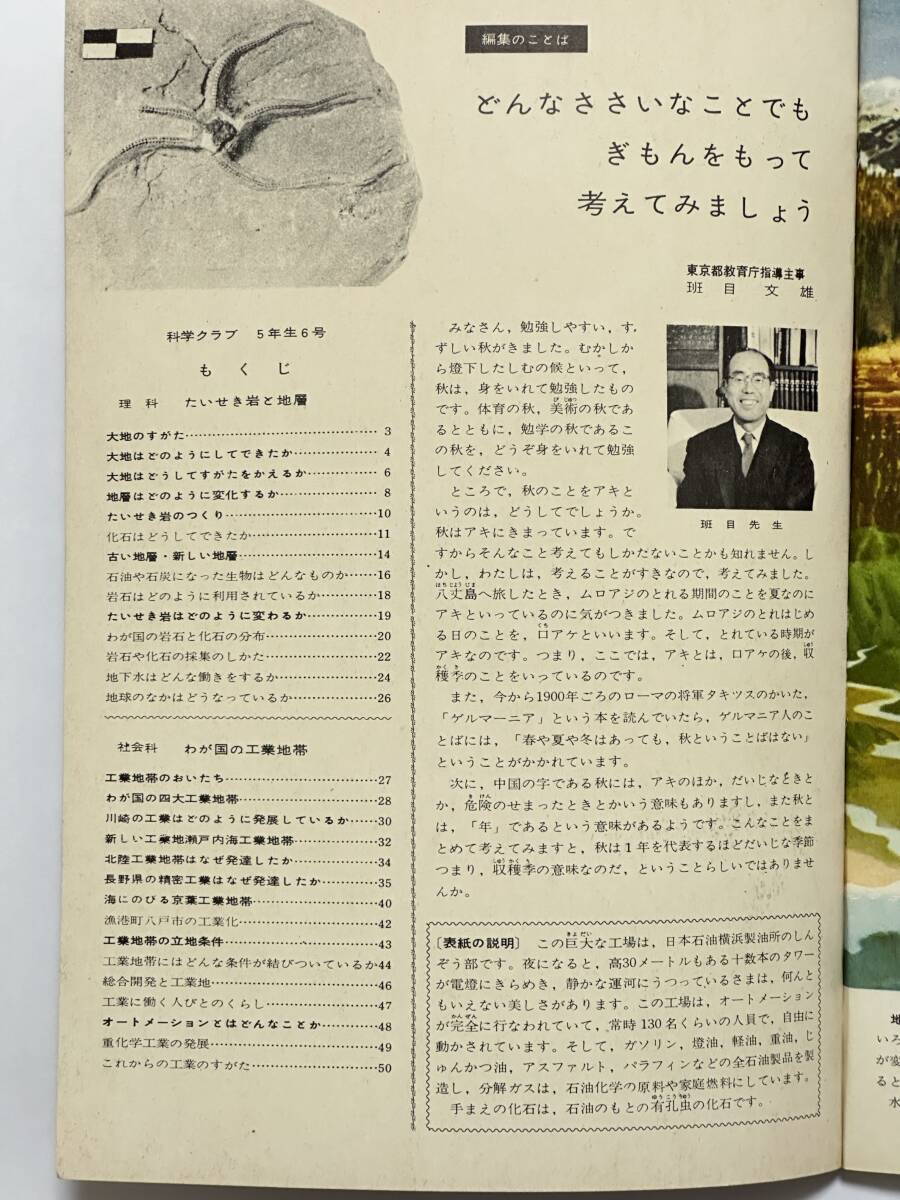 編集のことば
どんなささいなことでも
ぎもんをもって
考えてみましょう
東京都教育庁指導主事
班目文雄
科学クラブ 5年生6号
もくじ
理科 たいせき岩と地層
大地のすがた……3
大地はどのようにしてできたか……4
大地はどうしてすがたをかえるか……6
地層はどのように変化するか……8
たいせき岩のつくり……10
化石はどうしてできたか……11
古い地層・新しい地層……14
石油や石炭になった生物はどんなものか……16
岩石はどのように利用されているか……18
たいせき岩はどのように変わるか……19
わが国の岩石と化石の分布……20
岩石や化石の採集のしかた……22
地下水はどんな働きをするか……24
地球のなかはどうなっているか……26
社会科 わが国の工業地帯
工業地帯のおいたち……27
わが国の四大工業地帯……28
川崎の工業はどのように発展しているか……30
新しい工業地瀬戸内海工業地帯……32
北陸工業地帯はなぜ発達したか……34
長野県の精密工業はなぜ発達したか……35
海にのびる京葉工業地帯……40
漁港町八戸市の工業化……42
工業地帯の立地条件……43
工業地帯にはどんな条件が結びついているか44
総合開発と工業地……46
工業に働く人びとのくらし……47
オートメーションとはどんなことか……48
重化学工業の発展……49
これからの工業のすがた……50
みなさん，勉強しやすい，す
ずしい秋がきました。むかしか
ら燈下したしむの候といって，
秋は，身をいれて勉強したもの
です。体育の秋，美術の秋であ
るとともに，勉学の秋であるこ
の秋を，どうぞ身をいれて勉強
してください。
ところで，秋のことをアキと
いうのは，どうしてでしょうか。
秋はアキにきまっています。で
すからそんなこと考えてもしかたないことかも知れません。し
かし，わたしは，考えることがすきなので，考えてみました。
八丈島へ旅したとき，ムロアジのとれる期間のことを夏なのに
アキといっているのに気がつきました。ムロアジのとれはじめ
る日のことを，口アケといいます。そして，とれている時期が
アキなのです。つまり，ここでは，アキとは，口アケの後，収
穫季のことをいっているのです。
また，今から1900年ごろのローマの将軍タキツスのかいた，
「ゲルマーニア」という本を読んでいたら，ゲルマニア人のこ
とばには，「春や夏や冬はあっても，秋ということばはない」
ということがかかれています。
次に，中国の字である秋には，アキのほか，だいじなときと
か，危険のせまったときとかいう意味もありますし，また秋と
は，「年」であるという意味があるようです。こんなことをま
とめて考えてみますと，秋は1年を代表するほどだいじな季節
つまり，収穫季の意味なのだ，ということらしいではありませ
んか。
班目先生
〔表紙の説明〕 この巨大な工場は，日本石油横浜製油所のしん
ぞう部です。夜になると，高30メートルもある十数本のタワー
が電燈にきらめき，静かな運河にうつっているさまは，何んと
もいえない美しさがあります。この工場は，オートメーション
が完全に行なわれていて，常時130名くらいの人員で，自由に
動かされています。そして，ガソリン，燈油，軽油，重油，じ
ゅんかつ油，アスファルト，パラフィンなどの全石油製品を製
造し，分解ガスは，石油化学の原料や家庭燃料にしています。
手まえの化石は，石油のもとの有孔虫の化石です。
地
いろ
が変
ると
水